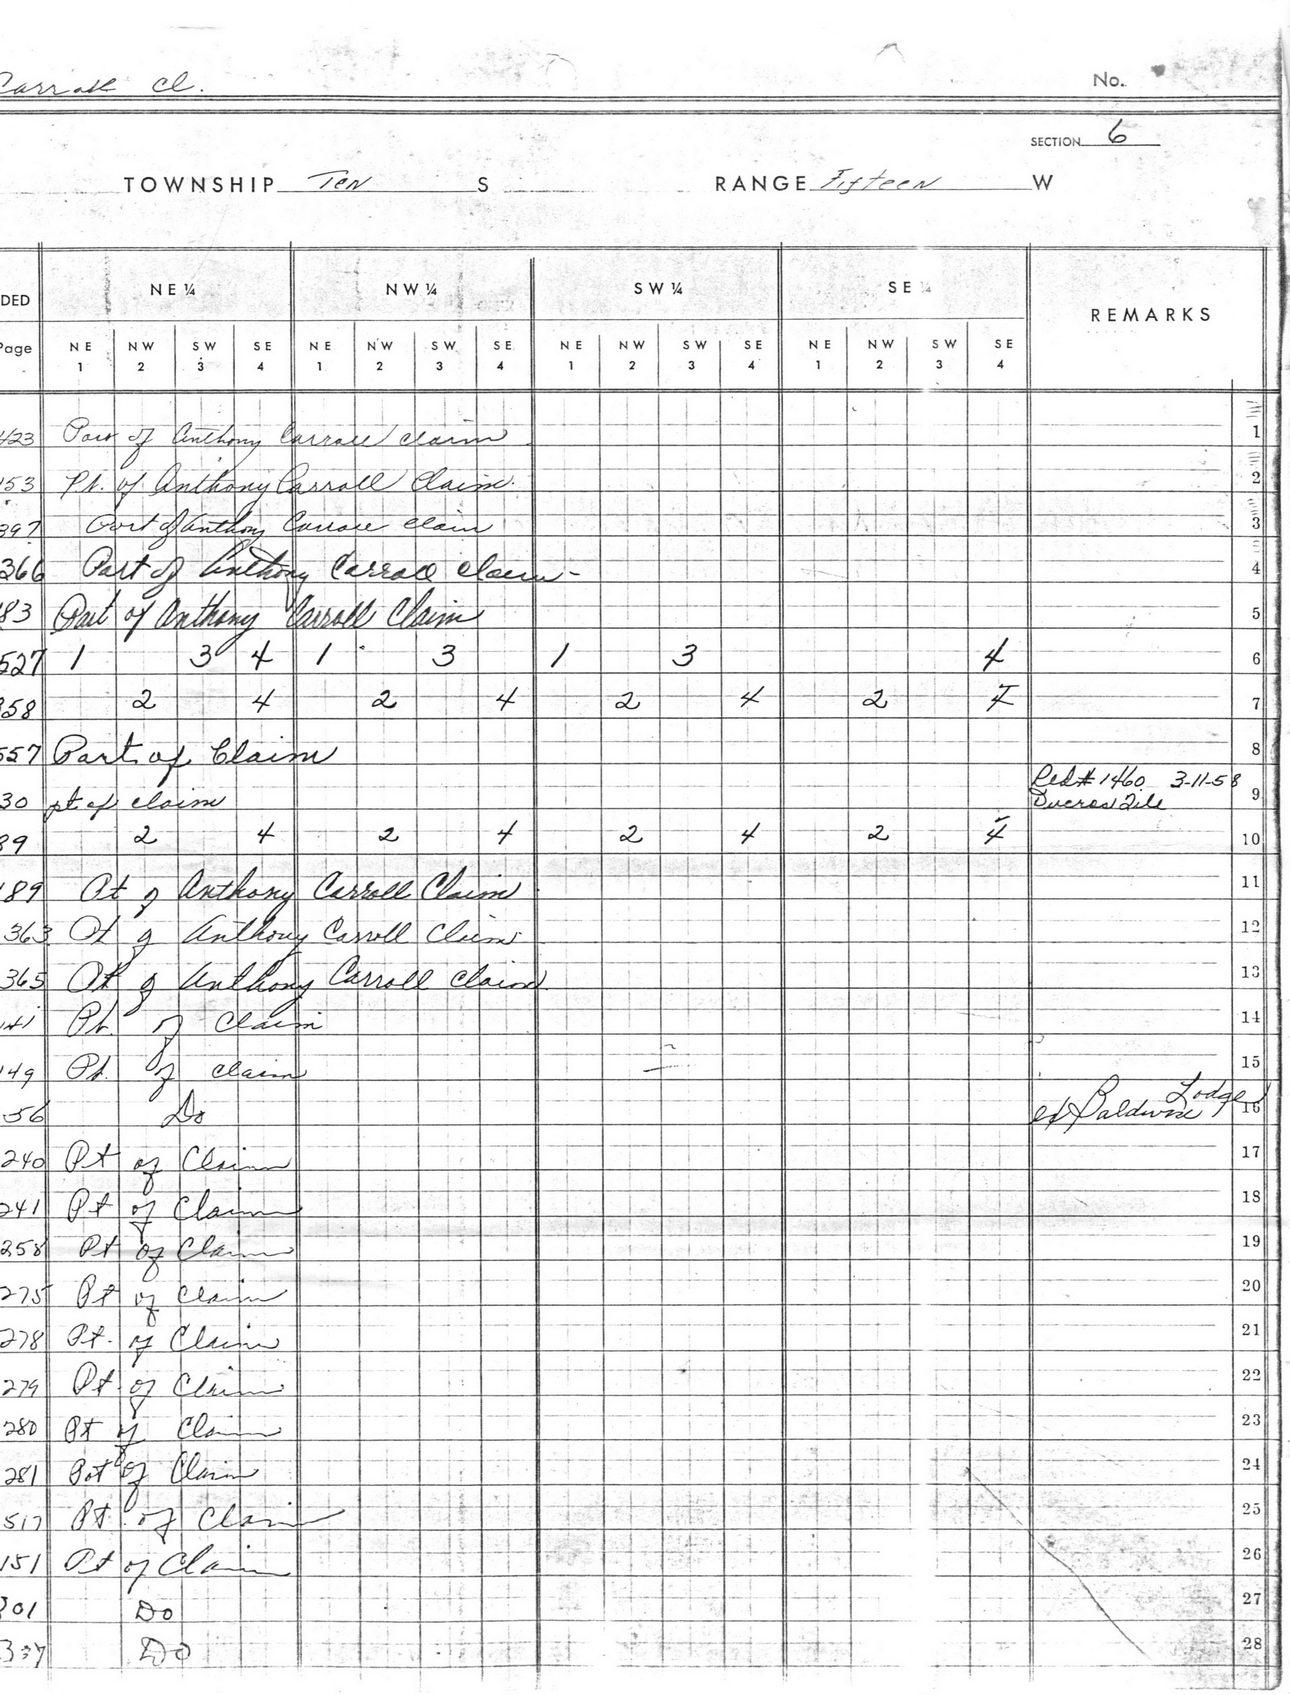 Carroll Cl. No.
SECTION 6
TOWNSHIP Ten S RANGE Fifteen W
DED NE ¼ NW ¼ SW ¼ SE ¼ REMARKS
Page NE NW SW SE NE NW SW SE NE NW SW SE NE NW SW SE
1 2 3 4 1 2 3 4 1 2 3 4 1 2 3 4
423 Part of Anthony Carroll claim 1
153 Pt. of Anthony Carroll Claim. 2
397 Part of Anthony Carroll claim 3
366 Part of Anthony Carroll claim - 4
83 Part of Anthony Carroll Claim 5
527 1 3 4 1 3 1 3 4 6
358 2 4 2 4 2 4 2 4 7
557 Part of Claim 8
30 pt of claim Red# 1460 3-11-58 9
Ducros File
89 2 4 2 4 2 4 2 4 10
189 Pt of Anthony Carroll Claim 11
363 Pt of Anthony Carroll Claim 12
365 Pt of Anthony Carroll Claim 13
141 Pt. of Claim 14
149 Pt. of claim 15
56 Do Baldwin Lodge 16
240 Pt of Claim 17
241 Pt of Claim 18
258 Pt of Claim 19
275 Pt of Claim 20
278 Pt. of Claim 21
279 Pt. of Claim 22
280 Pt of Claim 23
281 Pt of Claim 24
517 Pt. of Claim 25
151 Pt of Claim 26
301 Do 27
337 Do 28